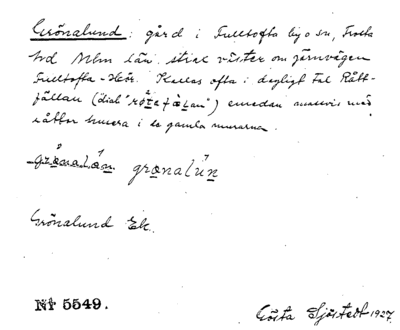 Grönalund: gård i Fulltofta by o sn, Frosta
hd Mlm län strax väster om järnvägen
Fulltofta-Hör. Kallas ofta i dagligt tal Rått-
fällan (dial "rǻtafælan") emedan massvis med
råttor husera i de gamla murarna.
grønalún
Grönalund Ek.
Nr 5549.
Gösta Sjöstedt 1927.